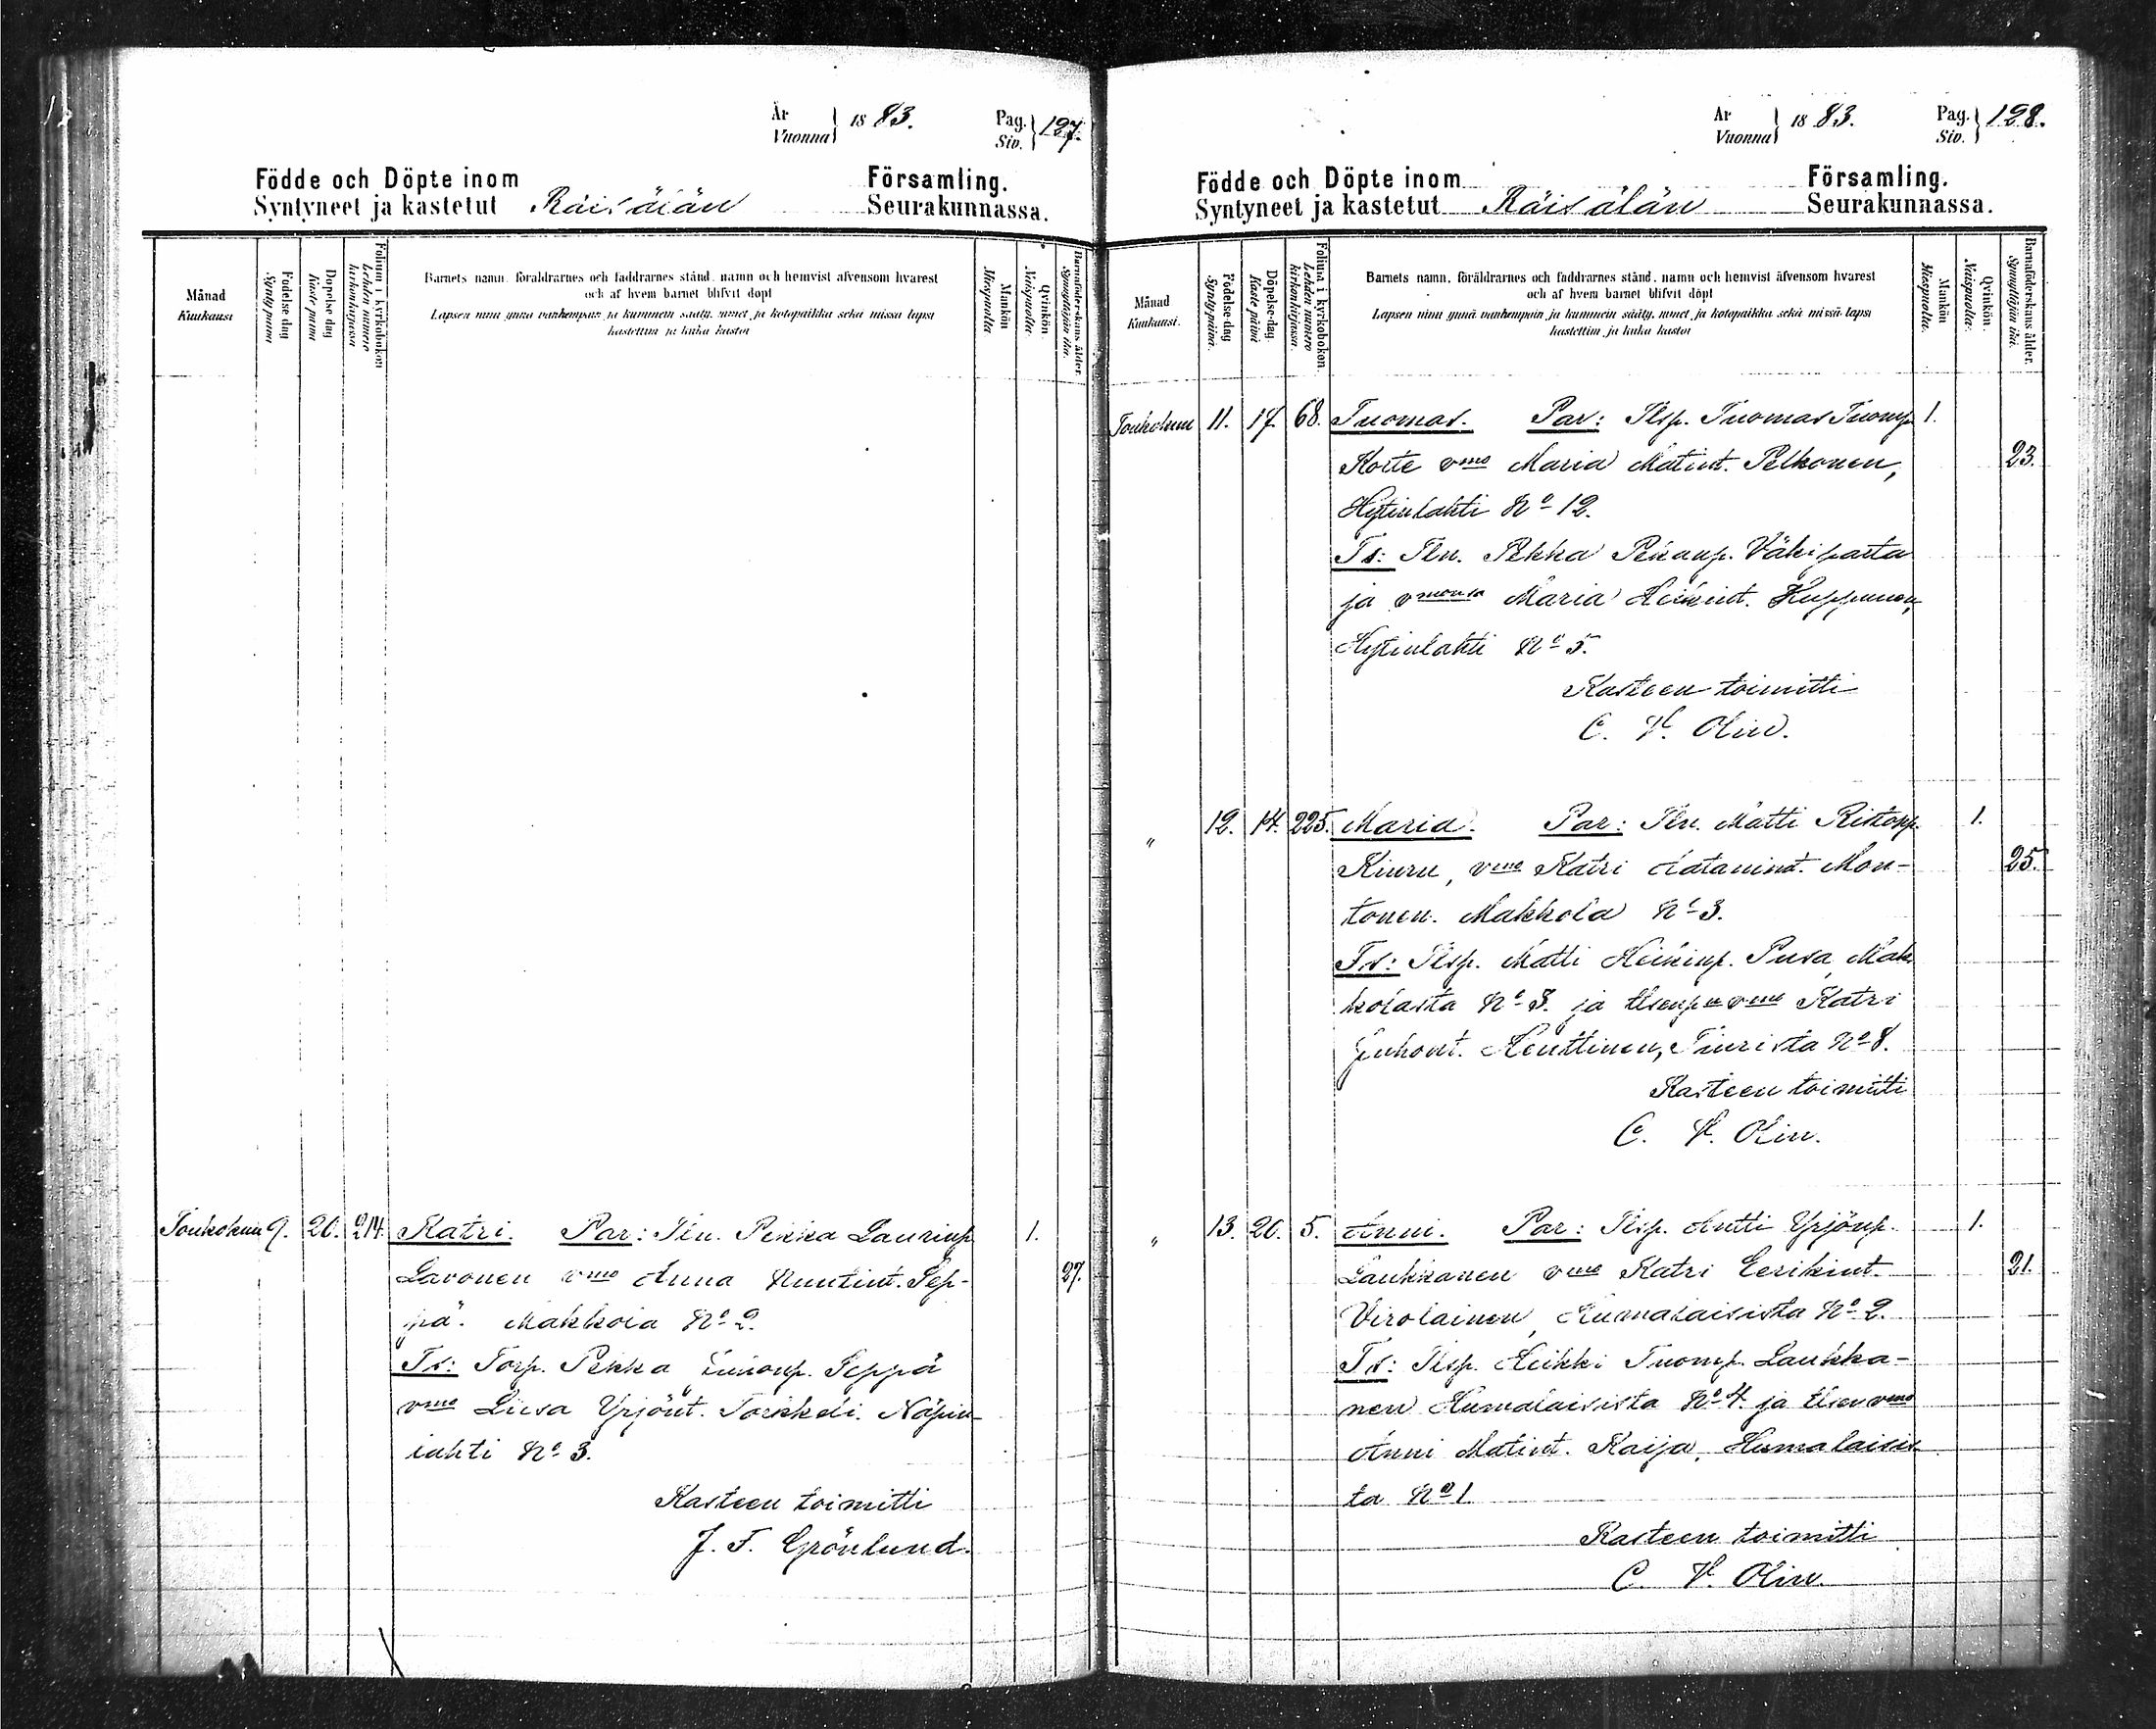 År
Vuonna } 18 83.
Pag.
Siv. } 127.
Födde och Döpte inom Församling.
Syntyneet ja kastetut Räisälän Seurakunnassa.
Månad
Kuukausi
Födelse dag
Syntypäivä
Döpelse dag
Kaste päivä
Folium i kyrkoboken
Lehden numero
kirkonkirjassa
Barnets namn, föräldrarnes och faddrarnes stånd, namn och hemvist äfvensom hvarest
och af hvem barnet blifvit döpt
Lapsen nimi ynnä vanhempain ja kummein sääty, nimet ja kotopaikka sekä missä lapsi
kastettiin ja kuka kastoi
Mankön
Miespuolta.
Qvinkön.
Naispuolta.
Barnaföderskans ålder.
Synnyttäjän ikä.
Toukokuu 9. 20. 214. Katri. Par: Iln. Pekka Laurinp. 1.
Lavonen vmo Anna Nuutint. Sep- 27.
pä. Makkola No 2.
Ts: Torp. Pekka Simonp. Seppä
vmo Liisa Yrjönt. Torkkeli. Näpin-
lahti No 3.
Kasteen toimitti
J. F. Grönlund.
År
Vuonna } 18 83.
Pag.
Siv. } 128.
Födde och Döpte inom Församling.
Syntyneet ja kastetut Räisälän Seurakunnassa.
Månad
Kuukausi.
Födelse-dag
Syntypäivä.
Döpelse-dag.
Kaste päivä
Folium i kyrkoboken.
Lehden numero
kirkonkirjassa.
Barnets namn, föräldrarnes och faddrarnes stånd, namn och hemvist äfvensom hvarest
och af hvem barnet blifvit döpt
Lapsen nimi ynnä vanhempain ja kummein sääty, nimet ja kotopaikka sekä missä lapsi
kastettiin ja kuka kastoi
Mankön
Miespuolta.
Qvinkön.
Naispuolta.
Barnaföderskans ålder.
Synnyttäjän ikä.
Toukokuu 11. 17. 68. Tuomas. Par: Ilsp. Tuomas Tuomp. 1.
Korte vmo Maria Matint. Pelkonen, 23.
Hytinlahti No 12.
Ts: Iln. Pekka Pekanp. Väkiparta
ja vmonsa Maria Heikint. Huppunen,
Hytinlahti No 5.
Kasteen toimitti
C. V. Olin.
" 12. 14. 225. Maria. Par: Iln. Matti Ristonp. 1.
Kiuru, vmo Katri Aatamint. Mon- 25.
tonen. Makkola No 3.
Ts: Ilsp. Matti Heikinp. Pusa, Mak
kolasta No 3. ja Ilsenp vmo Katri
Juhont. Kenttinen, Tiurista No 8.
Kasteen toimitti
C. V. Olin.
" 13. 20. 5. Anni. Par: Ilsp. Antti Yrjönp. 1.
Laukkanen vmo Katri Eerikint. 21.
Virolainen, Humalaisista No 2.
Ts: Ilsp. Heikki Tuomp. Laukka-
nen Humalaisista No 4. ja Ilsen vmo
Anni Matint. Kaija, Humalaisis
ta No 1.
Kasteen toimitti
C. V. Olin.